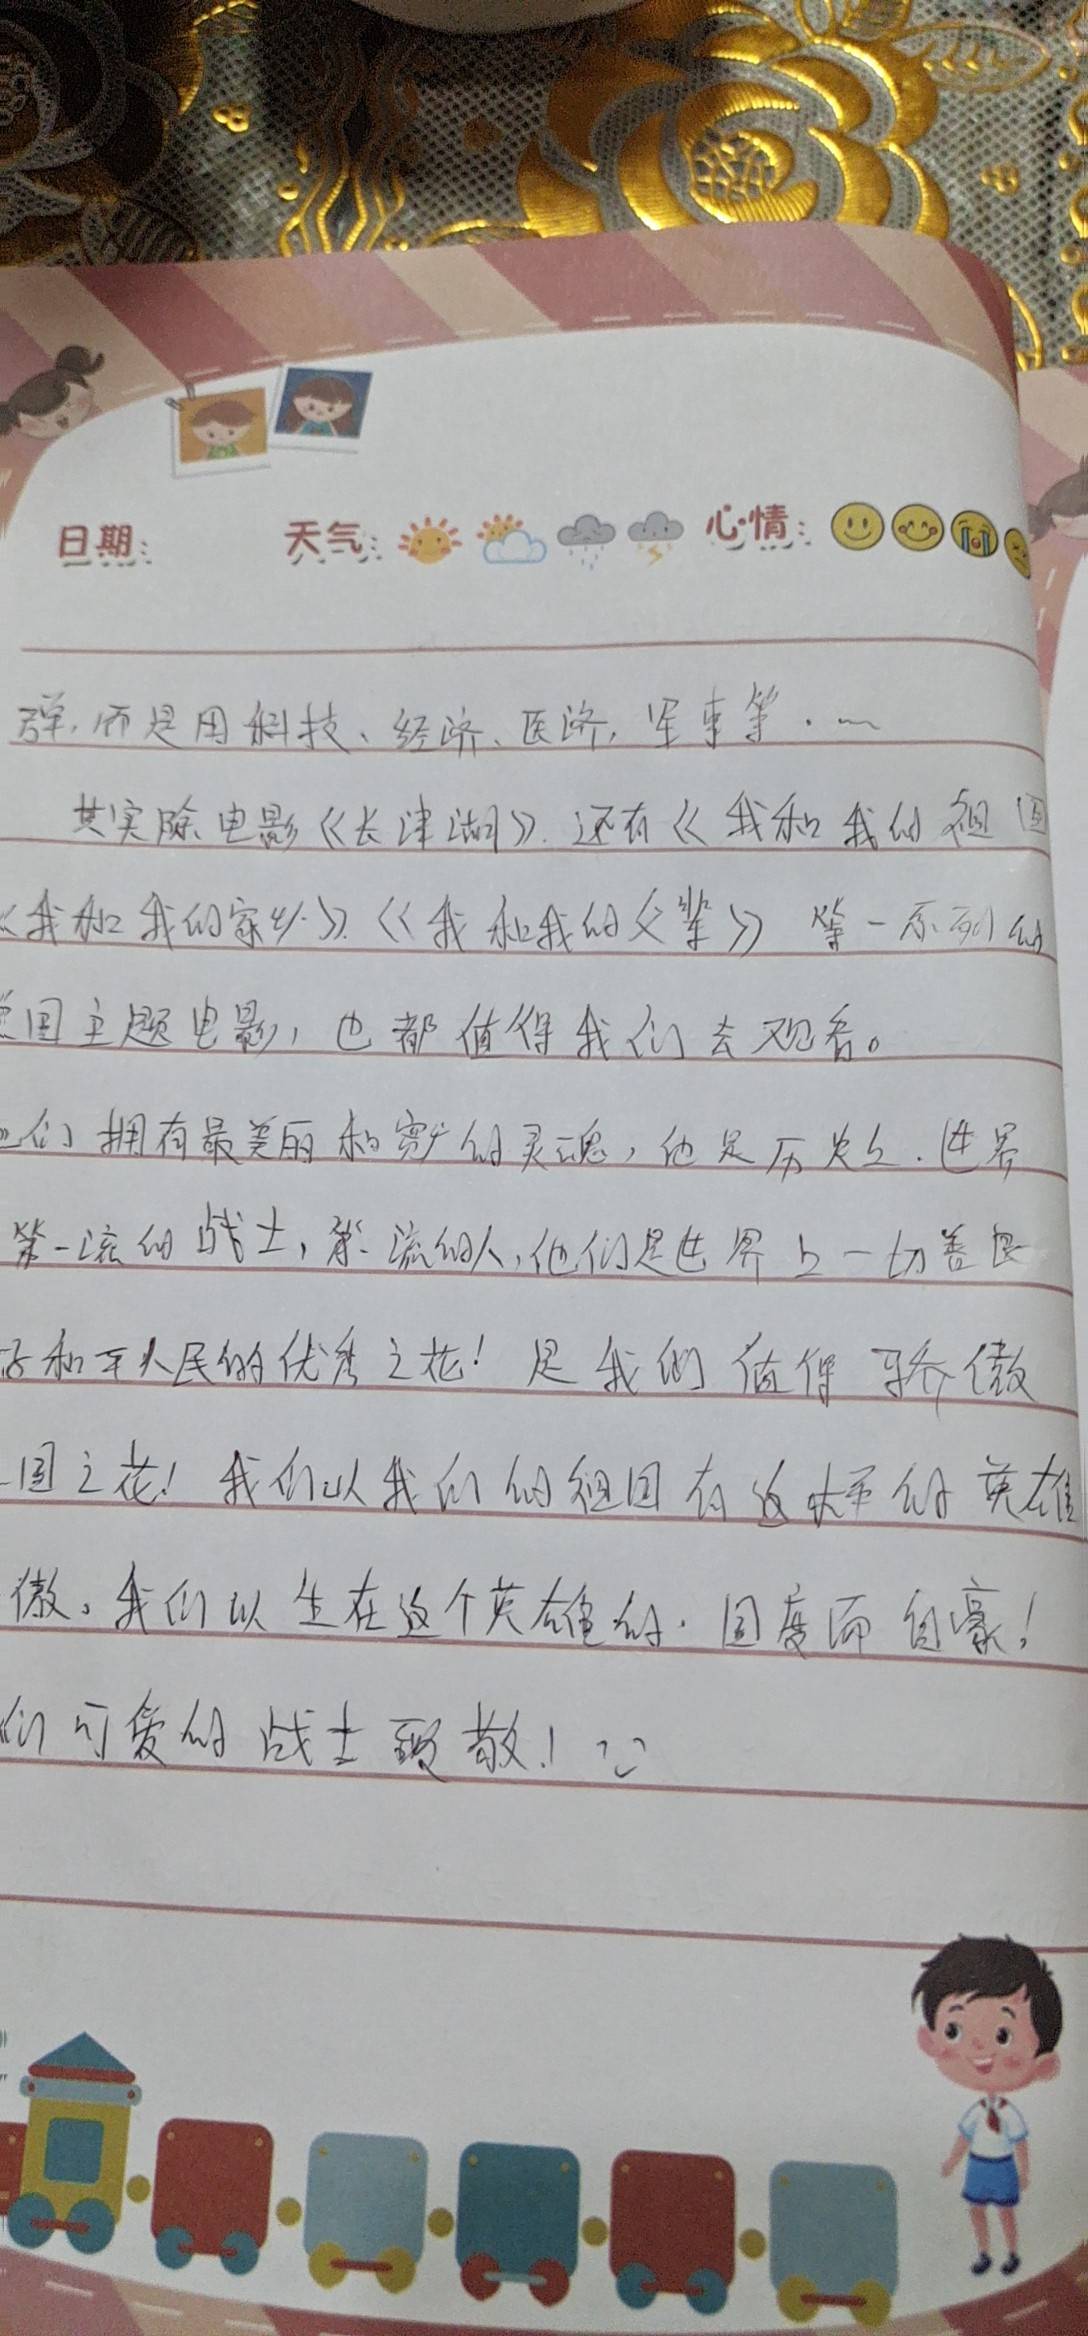 日期： 天气： 心情：
弹，而是用科技、经济、医济，军事等·～
其实除电影《长津湖》.还有《我和我的祖国
《我和我的家乡》.《我和我的父辈》等一系列的
国主题电影，也都值得我们去观看。
们拥有最美丽和宽广的灵魂，他是历史上.世界
第一流的战士，第一流的人，他们是世界上一切善良
好和平人民的优秀之花！是我们值得骄傲
国之花！我们以我们的祖国有这样的英雄
傲。我们以生在这个英雄的·国度而自豪！
们可爱的战士致敬！